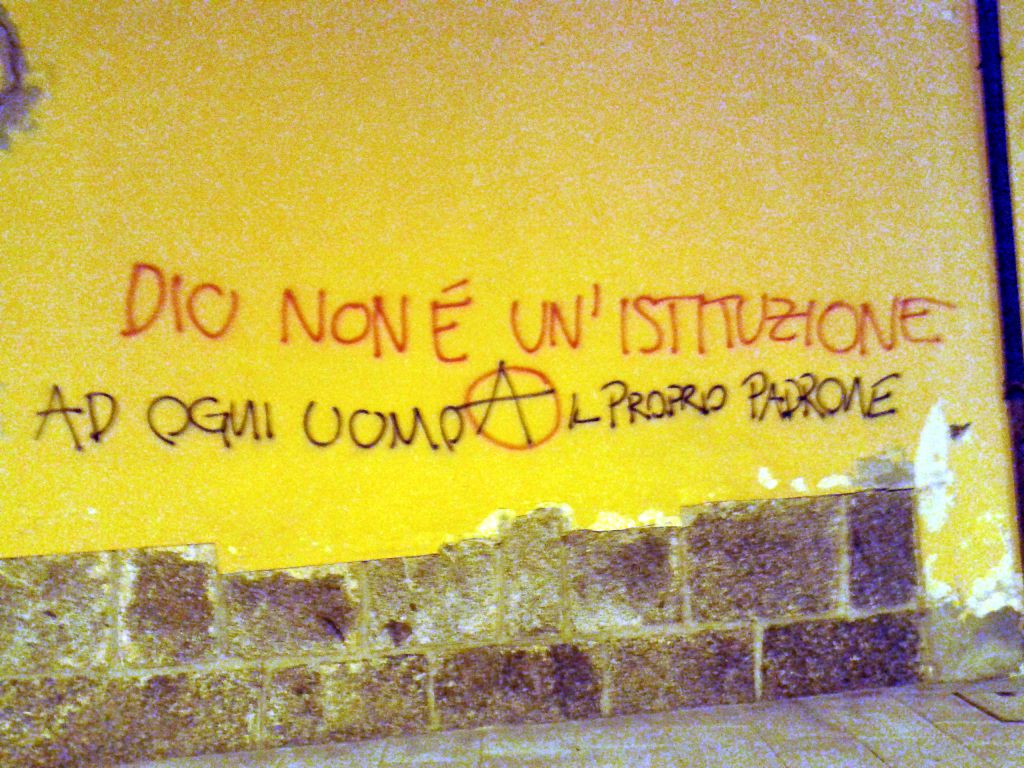 DIO NON É UN'ISTITUZIONE
AD OGNI UOMO A IL PROPRIO PADRONE